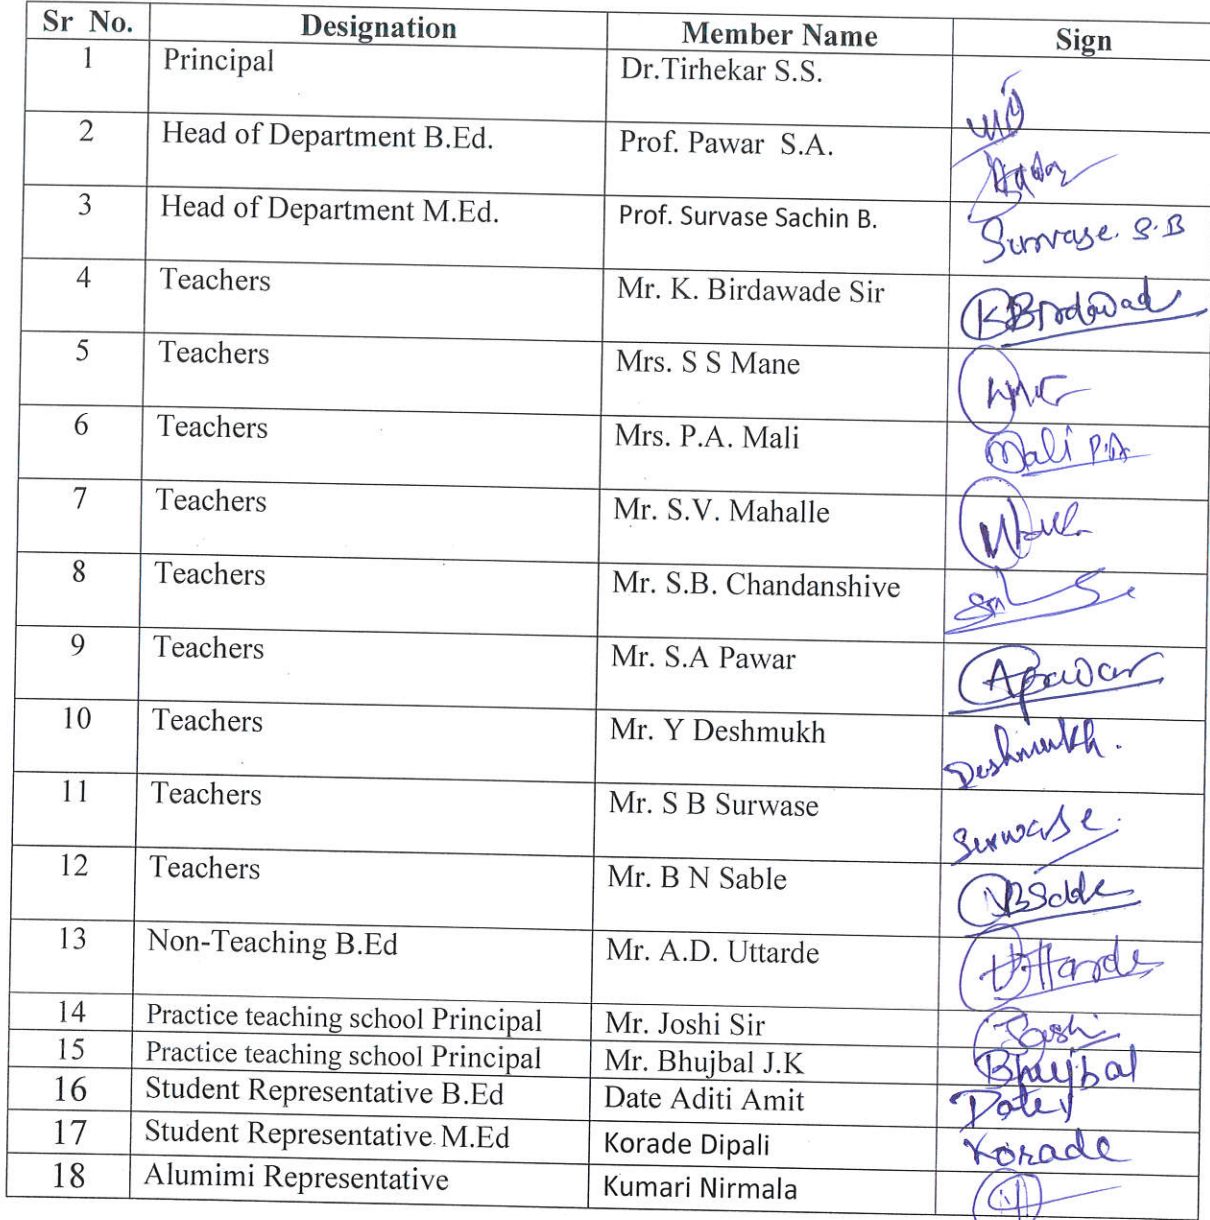 Sr No. Designation Member Name Sign
1 Principal Dr.Tirhekar S.S.
2 Head of Department B.Ed. Prof. Pawar S.A.
3 Head of Department M.Ed. Prof. Survase Sachin B. Survase. S.B
4 Teachers Mr. K. Birdawade Sir
5 Teachers Mrs. S S Mane
6 Teachers Mrs. P.A. Mali Mali P.A
7 Teachers Mr. S.V. Mahalle
8 Teachers Mr. S.B. Chandanshive
9 Teachers Mr. S.A Pawar APawar
10 Teachers Mr. Y Deshmukh Deshmukh.
11 Teachers Mr. S B Surwase Surwase.
12 Teachers Mr. B N Sable
13 Non-Teaching B.Ed Mr. A.D. Uttarde Uttarde
14 Practice teaching school Principal Mr. Joshi Sir Joshi
15 Practice teaching school Principal Mr. Bhujbal J.K Bhujbal
16 Student Representative B.Ed Date Aditi Amit
17 Student Representative M.Ed Korade Dipali Korade
18 Alumimi Representative Kumari Nirmala